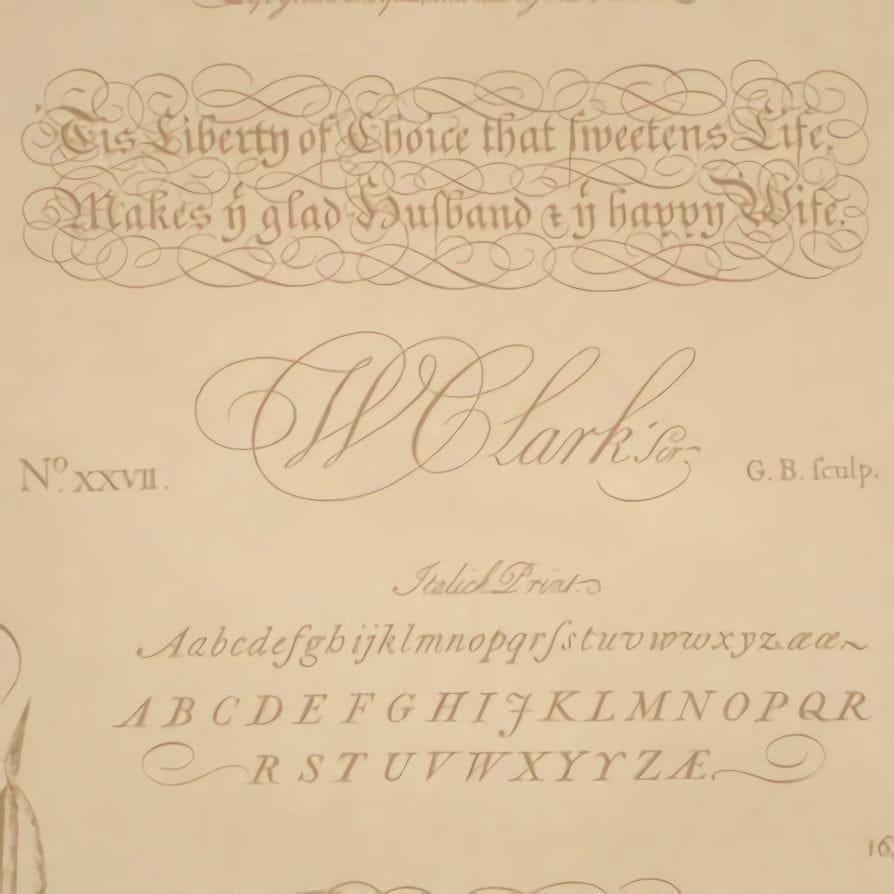 'Tis Liberty of Choice that ſweetens Life,
Makes ẙ glad Huſband & ẙ happy Wife.
W Clark Scr
No. XXVII.
G. B. ſculp.
Italick Print.
Aabcdefghijklmnopqrſstuvwwxyzææ
ABCDEFGHIJKLMNOPQR
RSTUVWXYYZÆ
16